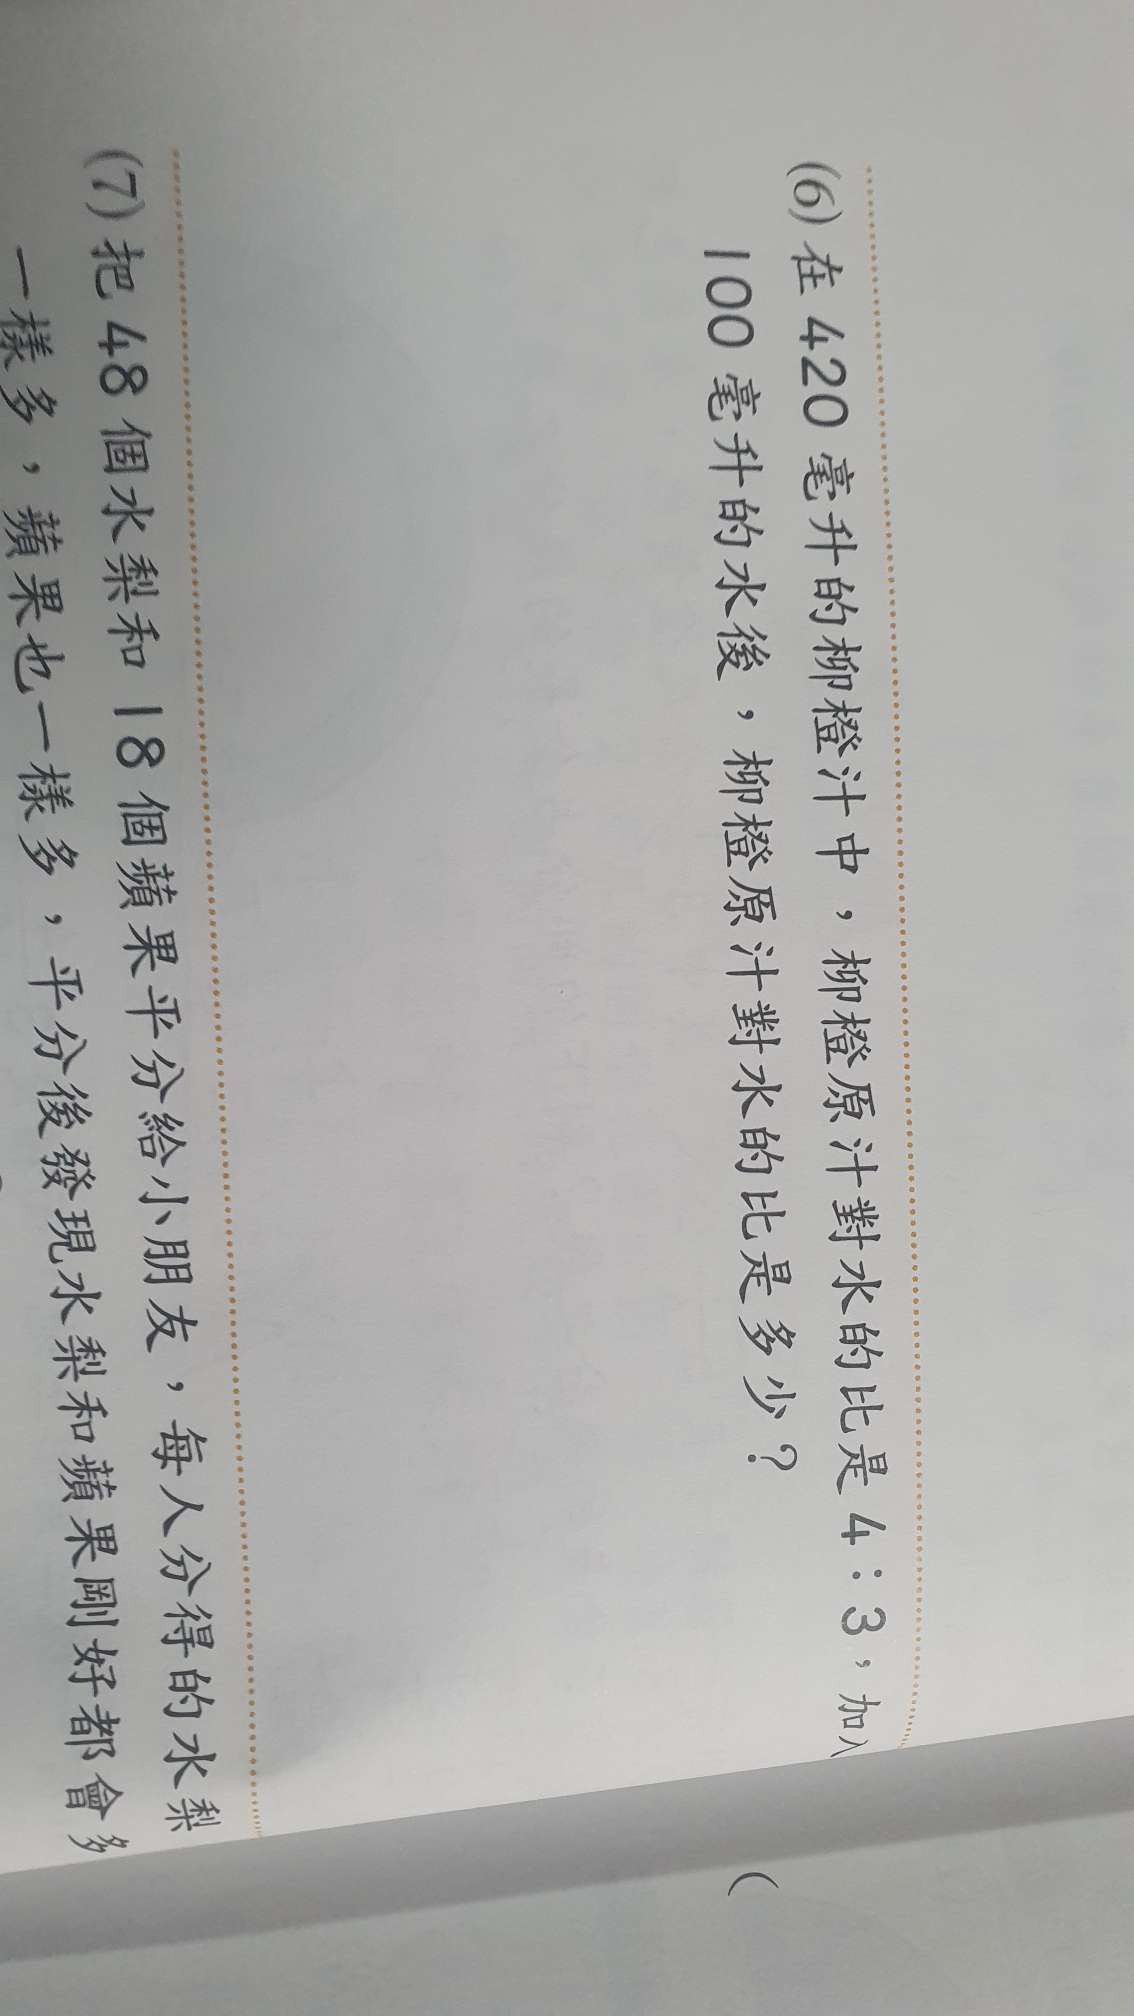 (6) 在 420 毫升的柳橙汁中，柳橙原汁對水的比是 4：3，加入
100 毫升的水後，柳橙原汁對水的比是多少？
(7) 把 48 個水梨和 18 個蘋果平分給小朋友，每人分得的水梨
一樣多，蘋果也一樣多，平分後發現水梨和蘋果剛好都會多
(